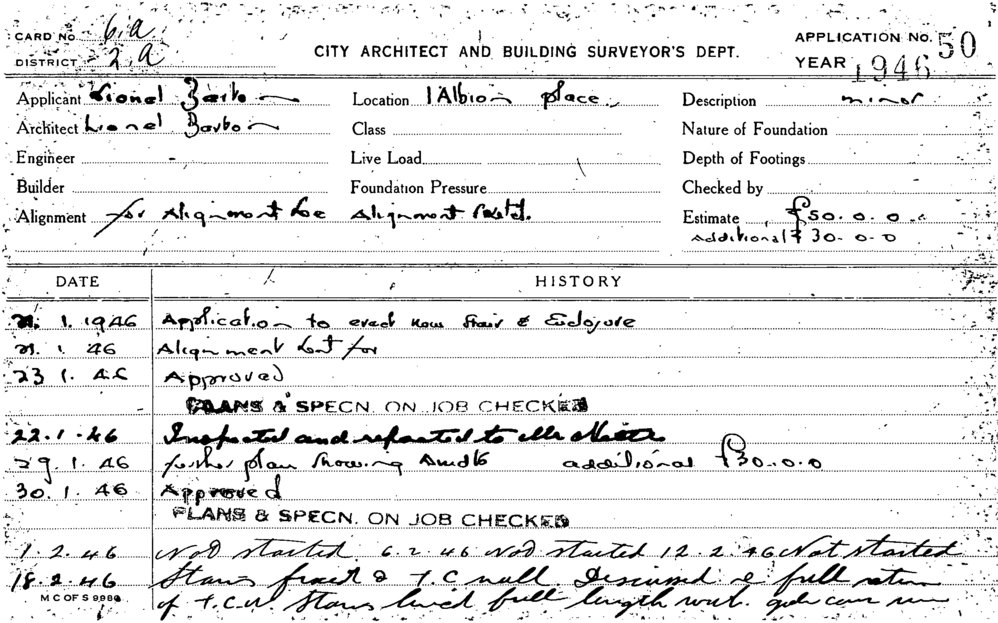 CARD No 6.a
DISTRICT 2.a
CITY ARCHITECT AND BUILDING SURVEYOR'S DEPT.
APPLICATION No. 50
YEAR 1946
Applicant Lionel Barbo Location 1 Albion place Description minor
Architect Lionel Barbo Class Nature of Foundation
Engineer - Live Load Depth of Footings
Builder Foundation Pressure Checked by
Alignment for Alignment see Alignment Estimate £50.0.0
Additional £30-0-0
DATE HISTORY
1.1946 Application to erect new Stair & Enclosure
1.46 Alignment for
23 1.46 Approved
PLANS & SPECN. ON JOB CHECKED
22.1.46 Inspected and reported to Mr
29.1.46 further plan showing Amdts additional £30.0.0
30.1.46 Approved
PLANS & SPECN. ON JOB CHECKED
1.2.46 Not started 6.2.46 Not started 12.2.46 Not started
18.2.46 Stairs & T.C wall. Discussed full
M C OF S 9989 of T.C.W. Stairs full length